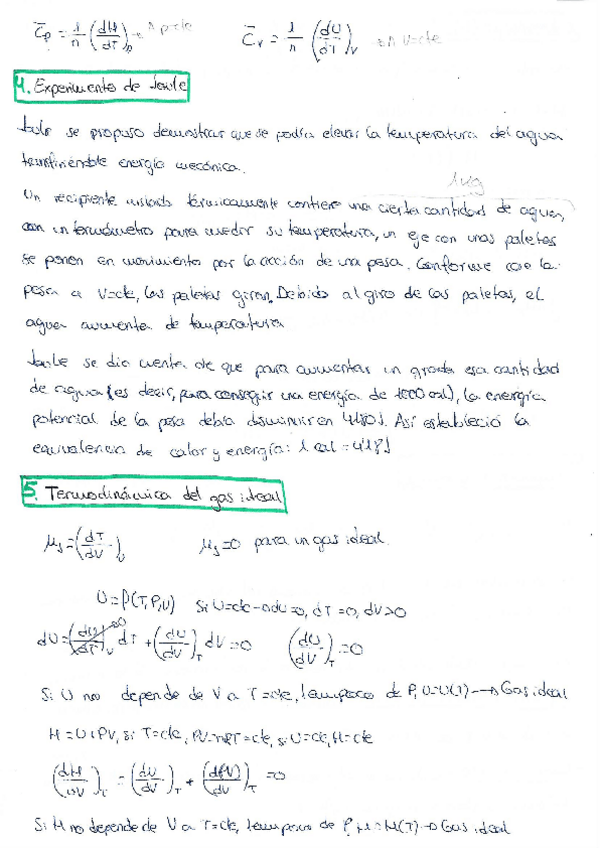 C̄p = 1/n (dH/dT)p → n p=cte C̄v = 1/n (dU/dT)v → n V=cte
4. Experimento de Joule
Joule se propuso demostrar que se podría elevar la temperatura del agua
transfiriéndole energía mecánica.
1kg
Un recipiente aislado térmicamente contiene una cierta cantidad de agua,
con un termómetro para medir su temperatura, un eje con unas paletas
se ponen en movimiento por la acción de una pesa. Conforme cae la
pesa a V=cte, las paletas giran. Debido al giro de las paletas, el
agua aumenta de temperatura
Joule se dio cuenta de que para aumentar un grado esa cantidad
de agua (es decir, para conseguir una energía de 1000 cal), la energía
potencial de la pesa debía disminuir en 4180J. Así estableció la
equivalencia de calor y energía: 1 cal = 4'18J
5. Termodinámica del gas ideal
μJ = (dT/dV)U μJ=0 para un gas ideal.
U=f(T,P,V) Si U=cte → dU=0, dT=0, dV>0
dU = (dU/dT)v dT + (dU/dV)T dV=0 (dU/dV)T =0
Si U no depende de V a T=cte, tampoco de P, U=U(T) → Gas ideal
H = U+PV, si T=cte, PV=nRT=cte, si U=cte, H=cte
(dH/dV)T = (dU/dV)T + (d(PV)/dV)T =0
Si H no depende de V a T=cte, tampoco de P, H=H(T) → Gas ideal